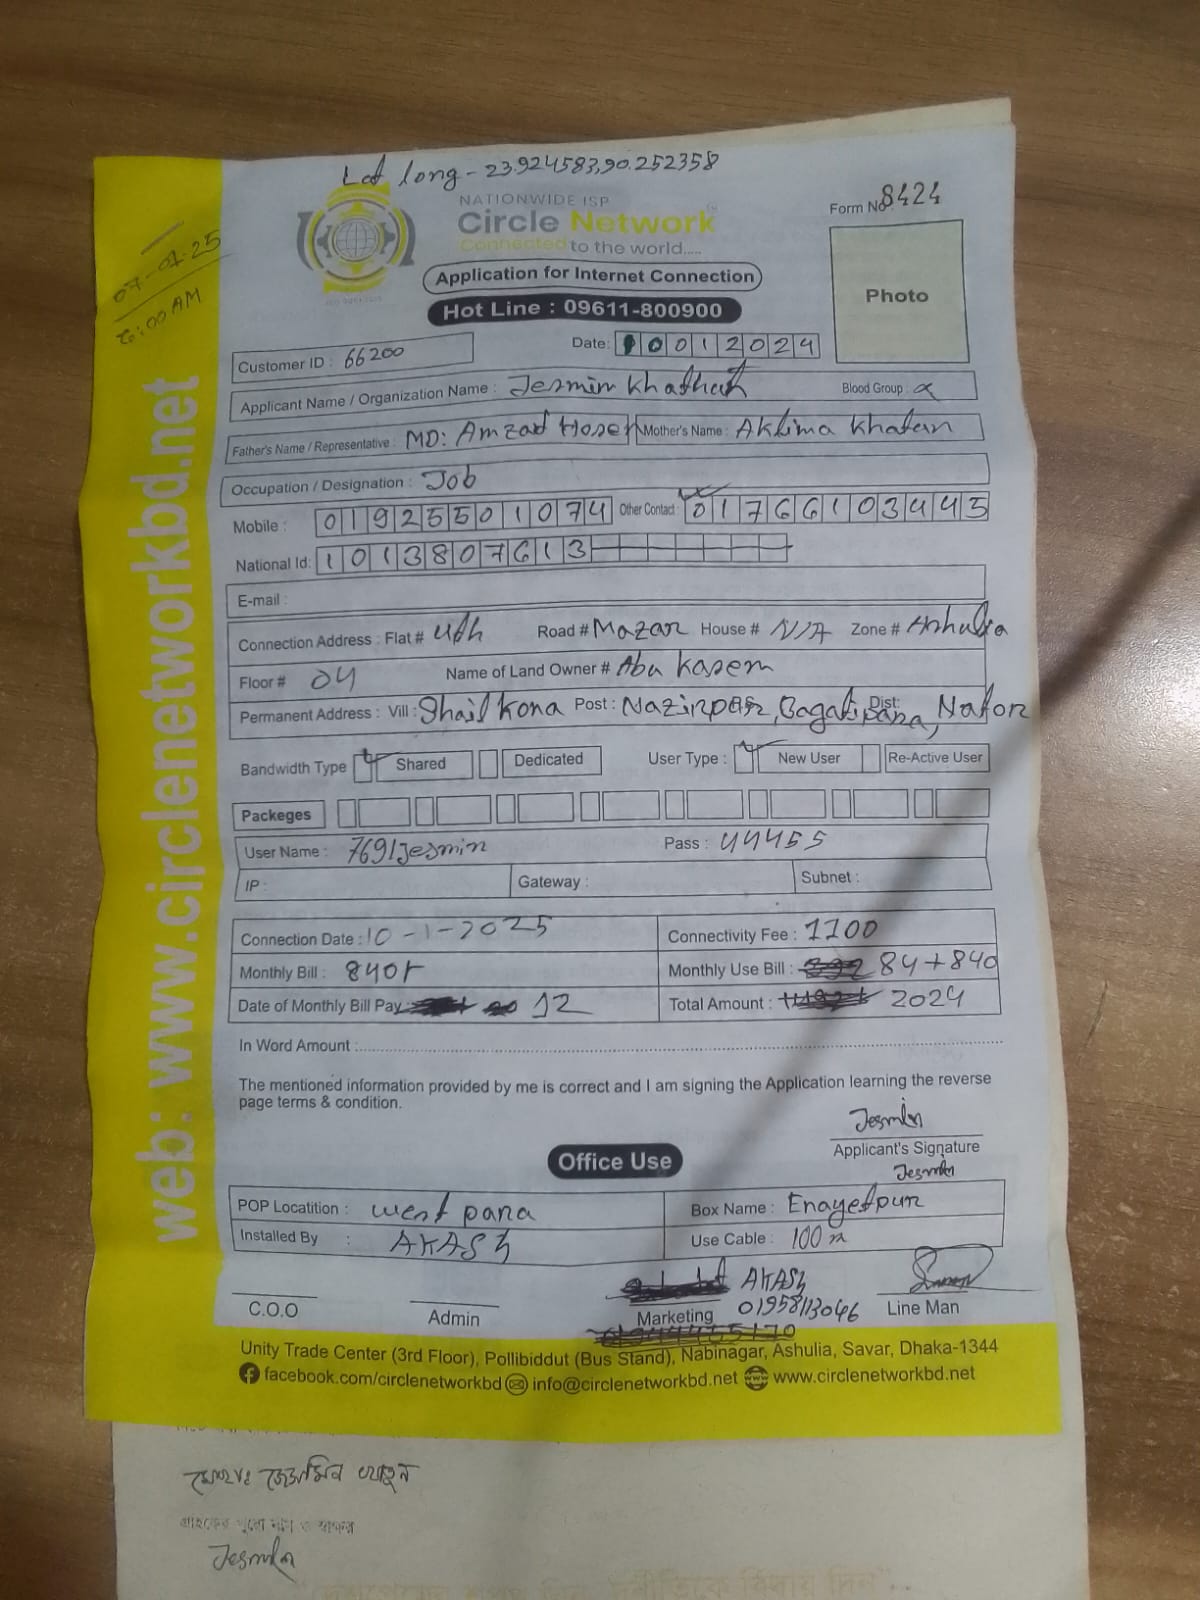 Lat long - 23.924583,90.252358
NATIONWIDE ISP
Circle Network
Connected to the world.....
Form No. 8424
Photo
07-01-25
Application for Internet Connection
Hot Line : 09611-800900
Customer ID : 66200
Date: 0012024
Applicant Name / Organization Name : Jesmin Khathun
Blood Group :
Father's Name / Representative : MD: Amzad Hosen Mother's Name : Aklima Khatun
Occupation / Designation : Job
Mobile : 01925501074 Other Contact : 01766103445
National Id: 1013807613
E-mail :
Connection Address : Flat # 4th Road # Mazar House # N/A Zone # Ashulia
Floor # 04 Name of Land Owner # Abu Kasem
Permanent Address : Vill : Shail Kona Post : Nazirpur, Bagatipara, Dist: Nator
Bandwidth Type Shared Dedicated User Type : New User Re-Active User
Packeges
User Name : 7691Jesmin Pass : 44455
IP : Gateway : Subnet :
Connection Date : 10-1-2025 Connectivity Fee : 1100
Monthly Bill : 840t Monthly Use Bill : 84+840
Date of Monthly Bill Pay 12 Total Amount : 2024
In Word Amount :
The mentioned information provided by me is correct and I am signing the Application learning the reverse
page terms & condition.
Jesmin
Applicant's Signature
Jesmin
Office Use
POP Locatition : west para Box Name : Enayetpur
Installed By : AKASh Use Cable : 100 m
AKASh
C.O.O Admin Marketing 01958113046 Line Man
Unity Trade Center (3rd Floor), Pollibiddut (Bus Stand), Nabinagar, Ashulia, Savar, Dhaka-1344
facebook.com/circlenetworkbd info@circlenetworkbd.net www.circlenetworkbd.net
web: www.circlenetworkbd.net
মোছাঃ জেসমিন খাতুন
গ্রাহকের পুরো নাম ও স্বাক্ষর
Jesmin